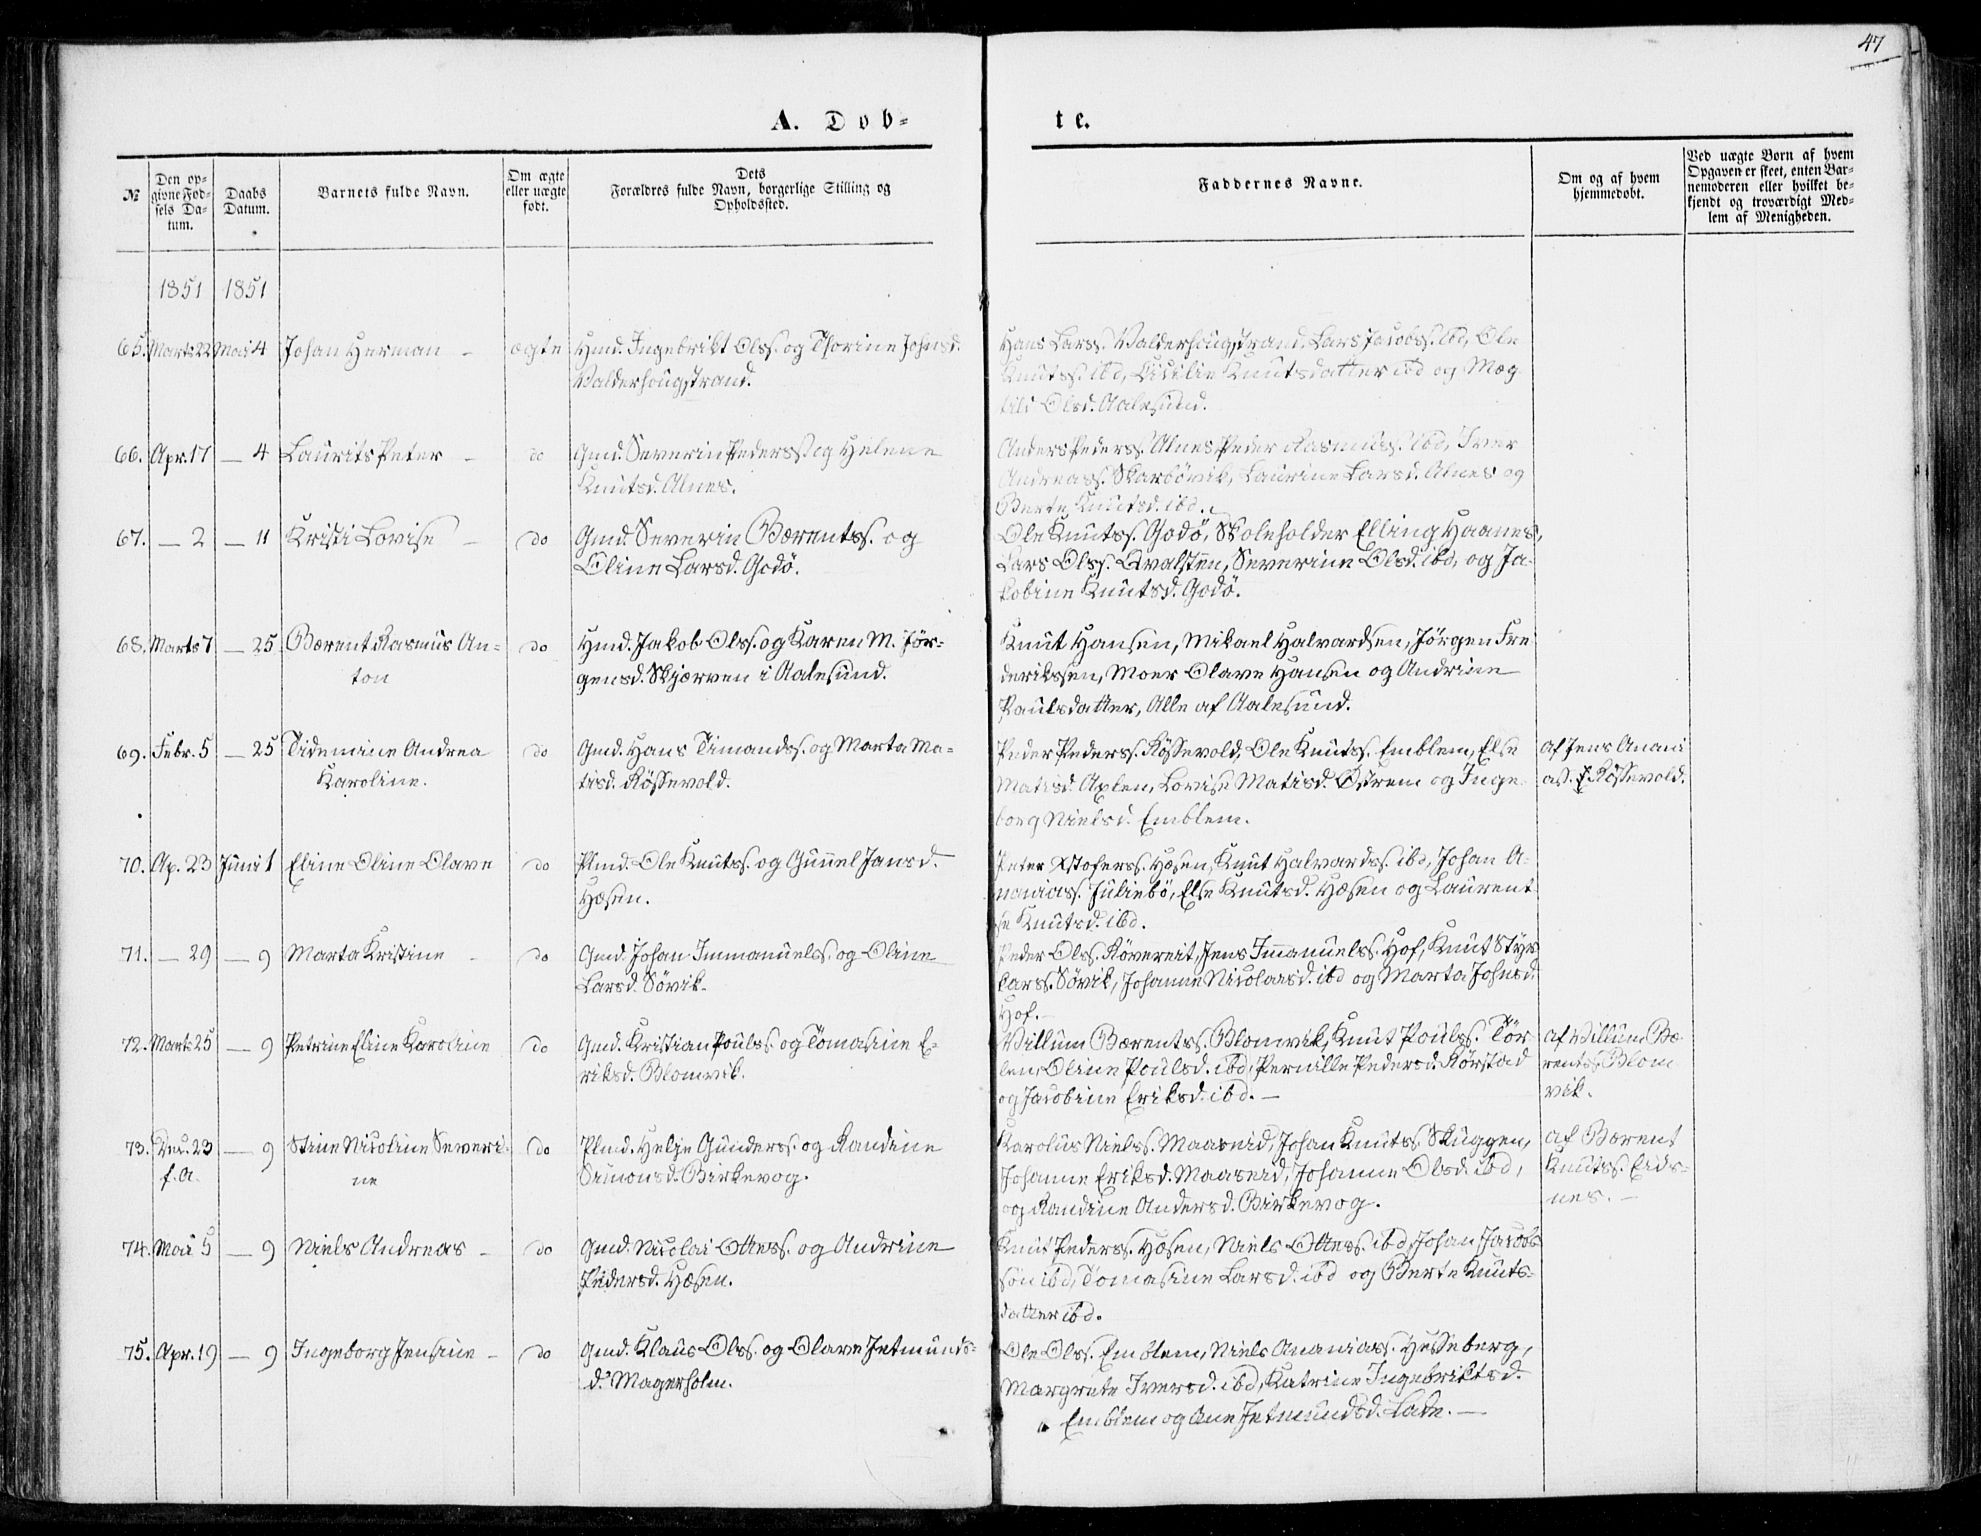 47
A. Døb-
te.
№
Den op-
givne Fød-
sels Da-
tum.
Daabs
Datum.
Barnets fulde Navn.
Om ægte
eller uægte
født.
Dets
Forældres fulde Navn, borgerlige Stilling og
Opholdssted.
Faddernes Navne.
Om og af hvem
hjemmedøbt.
Ved uægte Børn af hvem
Opgaven er skeet, enten Bar-
nemoderen eller hvilket be-
kjendt og troværdigt Med-
lem af Menigheden.
1851 1851
65. Marts 22 Mai 4 Johan Herman - ægte Hmd. Ingebrikt Olss. og Thorine Johnsd.
Valderhougstrand.
Hans Larss. Valderhougstrand, Lars Jacobss. ibd, Ole
Knutss. ibd, Cicilie Knutsdatter ibd og Mæg-
tild Olsd. Aalesund.
66. Apr. 17 - 4 Laurits Peter - do Gmd. Severin Pederss. og Helene
Knutsd. Alnes.
Anders Pederss. Alnes, Peder Rasmuss. ibd, Iver
Andreass. Skarbövik, Laurine Larsd. Alnes og
Berte Knutsd. ibd.
67. - 2 - 11 Kristi Lovise - do Gmd. Severin Bærentss. og
Oline Larsd. Godö.
Ole Knutss. Godö, Skoleholder Elling Haanes,
Lars Olss. Qvalsten, Severine Olsd. ibd, og Ja-
kobine Knutsd. Godö.
68. Marts 7 - 25 Bærent Rasmus An-
ton
do Hmd. Jakob Olss. og Karen M. Jör-
gensd. Skjærven i Aalesund.
Knut Hansen, Mikael Halvardsen, Jörgen Fre-
deriksen, Moer Olave Hansen og Andrine
Paulsdatter, Alle af Aalesund.
69. Febr. 5 - 25 Tidemine Andrea
Karoline.
do Gmd. Hans Timandss. og Marta Ma-
tisd. Rössevold.
Peder Pederss. Rössevold, Ole Knutss. Emblem, Else
Matisd. Axlen, Lovise Matisd. Østrem og Inge-
borg Nielsd. Emblem.
af Jens Anani
as. Rössevold.
70. Ap. 23 Juni 1 Eline Oline Olave do Plmd. Ole Knutss. og Gunnel Jansd.
Hæsen.
Peter Xstofers. Hæsen, Knut Halvardss. ibd, Johan A-
naniass. Juliebö, Else Knutsd. Hæsen og Laurent-
se Knutsd. ibd.
71. - 29 - 9 Marta Kristine - do Gmd. Johan Immanuels. og Oline
Larsd. Sövik.
Peder Olss. Rövereit, Jens Immanuelss. Hof, Knut Styr
karss. Sövik, Johanne Nicolaisd. ibd og Marta Johnsd.
Hof.
72. Marts 25 - 9 Petrine Eline Karoline do Gmd. Kristian Poulss. og Tomasine E-
riksd. Blomvik.
Villum Bærentss. Blomvik, Knut Poulss. Tör-
len, Oline Poulsd. ibd, Pernille Pedersd. Rörstad
og Jacobine Eriksd. ibd. -
af Villum Bæ
rentss. Blom
vik.
73. Dec. 23
f. A.
- 9 Stine Nicoline Severi-
ne
do Plmd. Helje Gunderss. og Randine
Simonsd. Birkevog.
Karolus Nielss. Maaseid, Johan Knutss. Skuggen,
Johanne Eriksd. Maaseid, Johanne Olsd. ibd,
og Randine Andersd. Birkevog.
af Bærent
Knutss. Eids-
nes. -
74. Mai 5 - 9 Niels Andreas - do Gmd. Nicolai Ottess. og Andrine
Pedersd. Hæsen.
Knut Pederss. Hæsen, Niels Ottess. ibd, Johan Jacobs-
søn ibd, Tomasine Larsd. ibd og Berte Knuts-
datter ibd.
75. Apr. 19 - 9 Ingeborg Jensine - do Gmd. Klaus Olss. og Olave Jetmunds-
d. Magerholm.
Ole Olss. Emblem, Niels Ananiass. Hesseberg,
Margrete Iversd. ibd, Katrine Ingebriktsd.
Emblem og Ane Jetmundsd. Lade. -